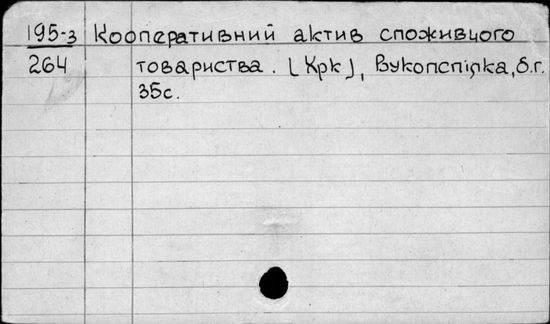 195-з Кооперативний актив споживчого
264 товариства. [Хрк], Вукопспілка, б.г.
35с.